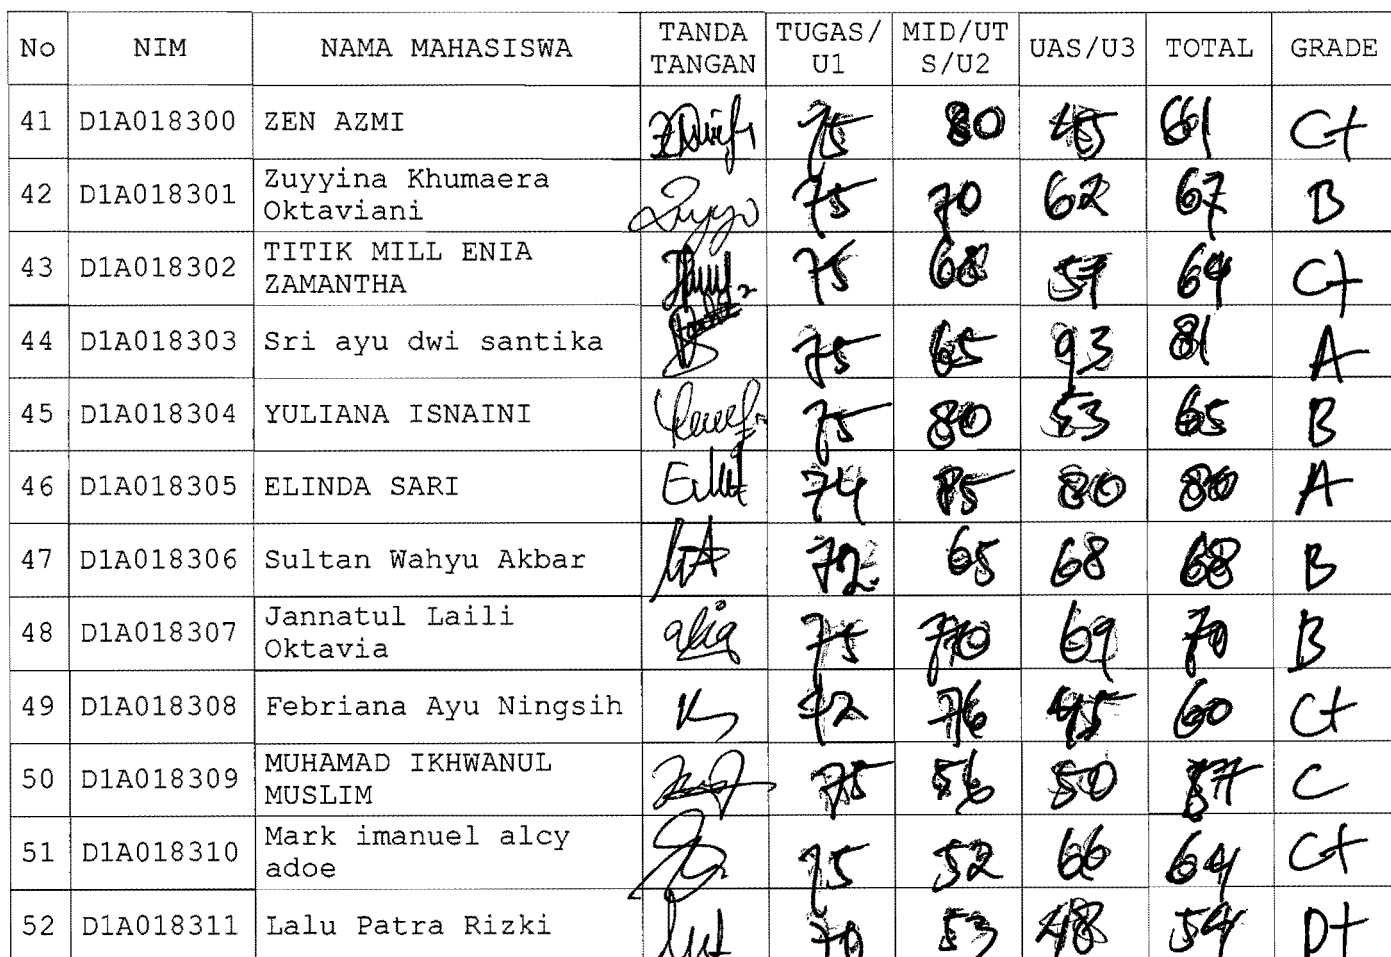 No NIM NAMA MAHASISWA TANDA TANGAN TUGAS/U1 MID/UTS/U2 UAS/U3 TOTAL GRADE
41 D1A018300 ZEN AZMI 75 80 45 61 C+
42 D1A018301 Zuyyina Khumaera
Oktaviani 75 70 62 67 B
43 D1A018302 TITIK MILL ENIA
ZAMANTHA 75 68 57 64 C+
44 D1A018303 Sri ayu dwi santika 75 65 93 81 A
45 D1A018304 YULIANA ISNAINI 75 80 53 65 B
46 D1A018305 ELINDA SARI 74 85 80 80 A
47 D1A018306 Sultan Wahyu Akbar 72 65 68 68 B
48 D1A018307 Jannatul Laili
Oktavia 75 70 69 70 B
49 D1A018308 Febriana Ayu Ningsih 72 76 45 60 C+
50 D1A018309 MUHAMAD IKHWANUL
MUSLIM 75 56 50 57 C
51 D1A018310 Mark imanuel alcy
adoe 75 52 66 64 C+
52 D1A018311 Lalu Patra Rizki 70 53 48 54 D+